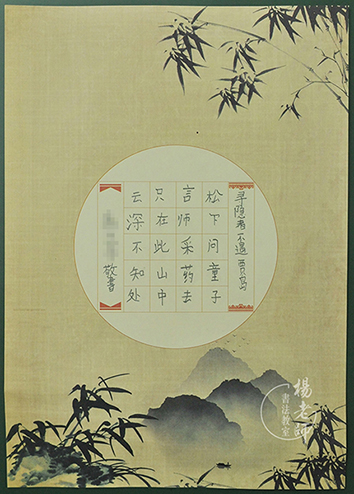 寻隐者不遇 贾岛
松下问童子
言师采药去
只在此山中
云深不知处
敬书
楊老師
書法教室